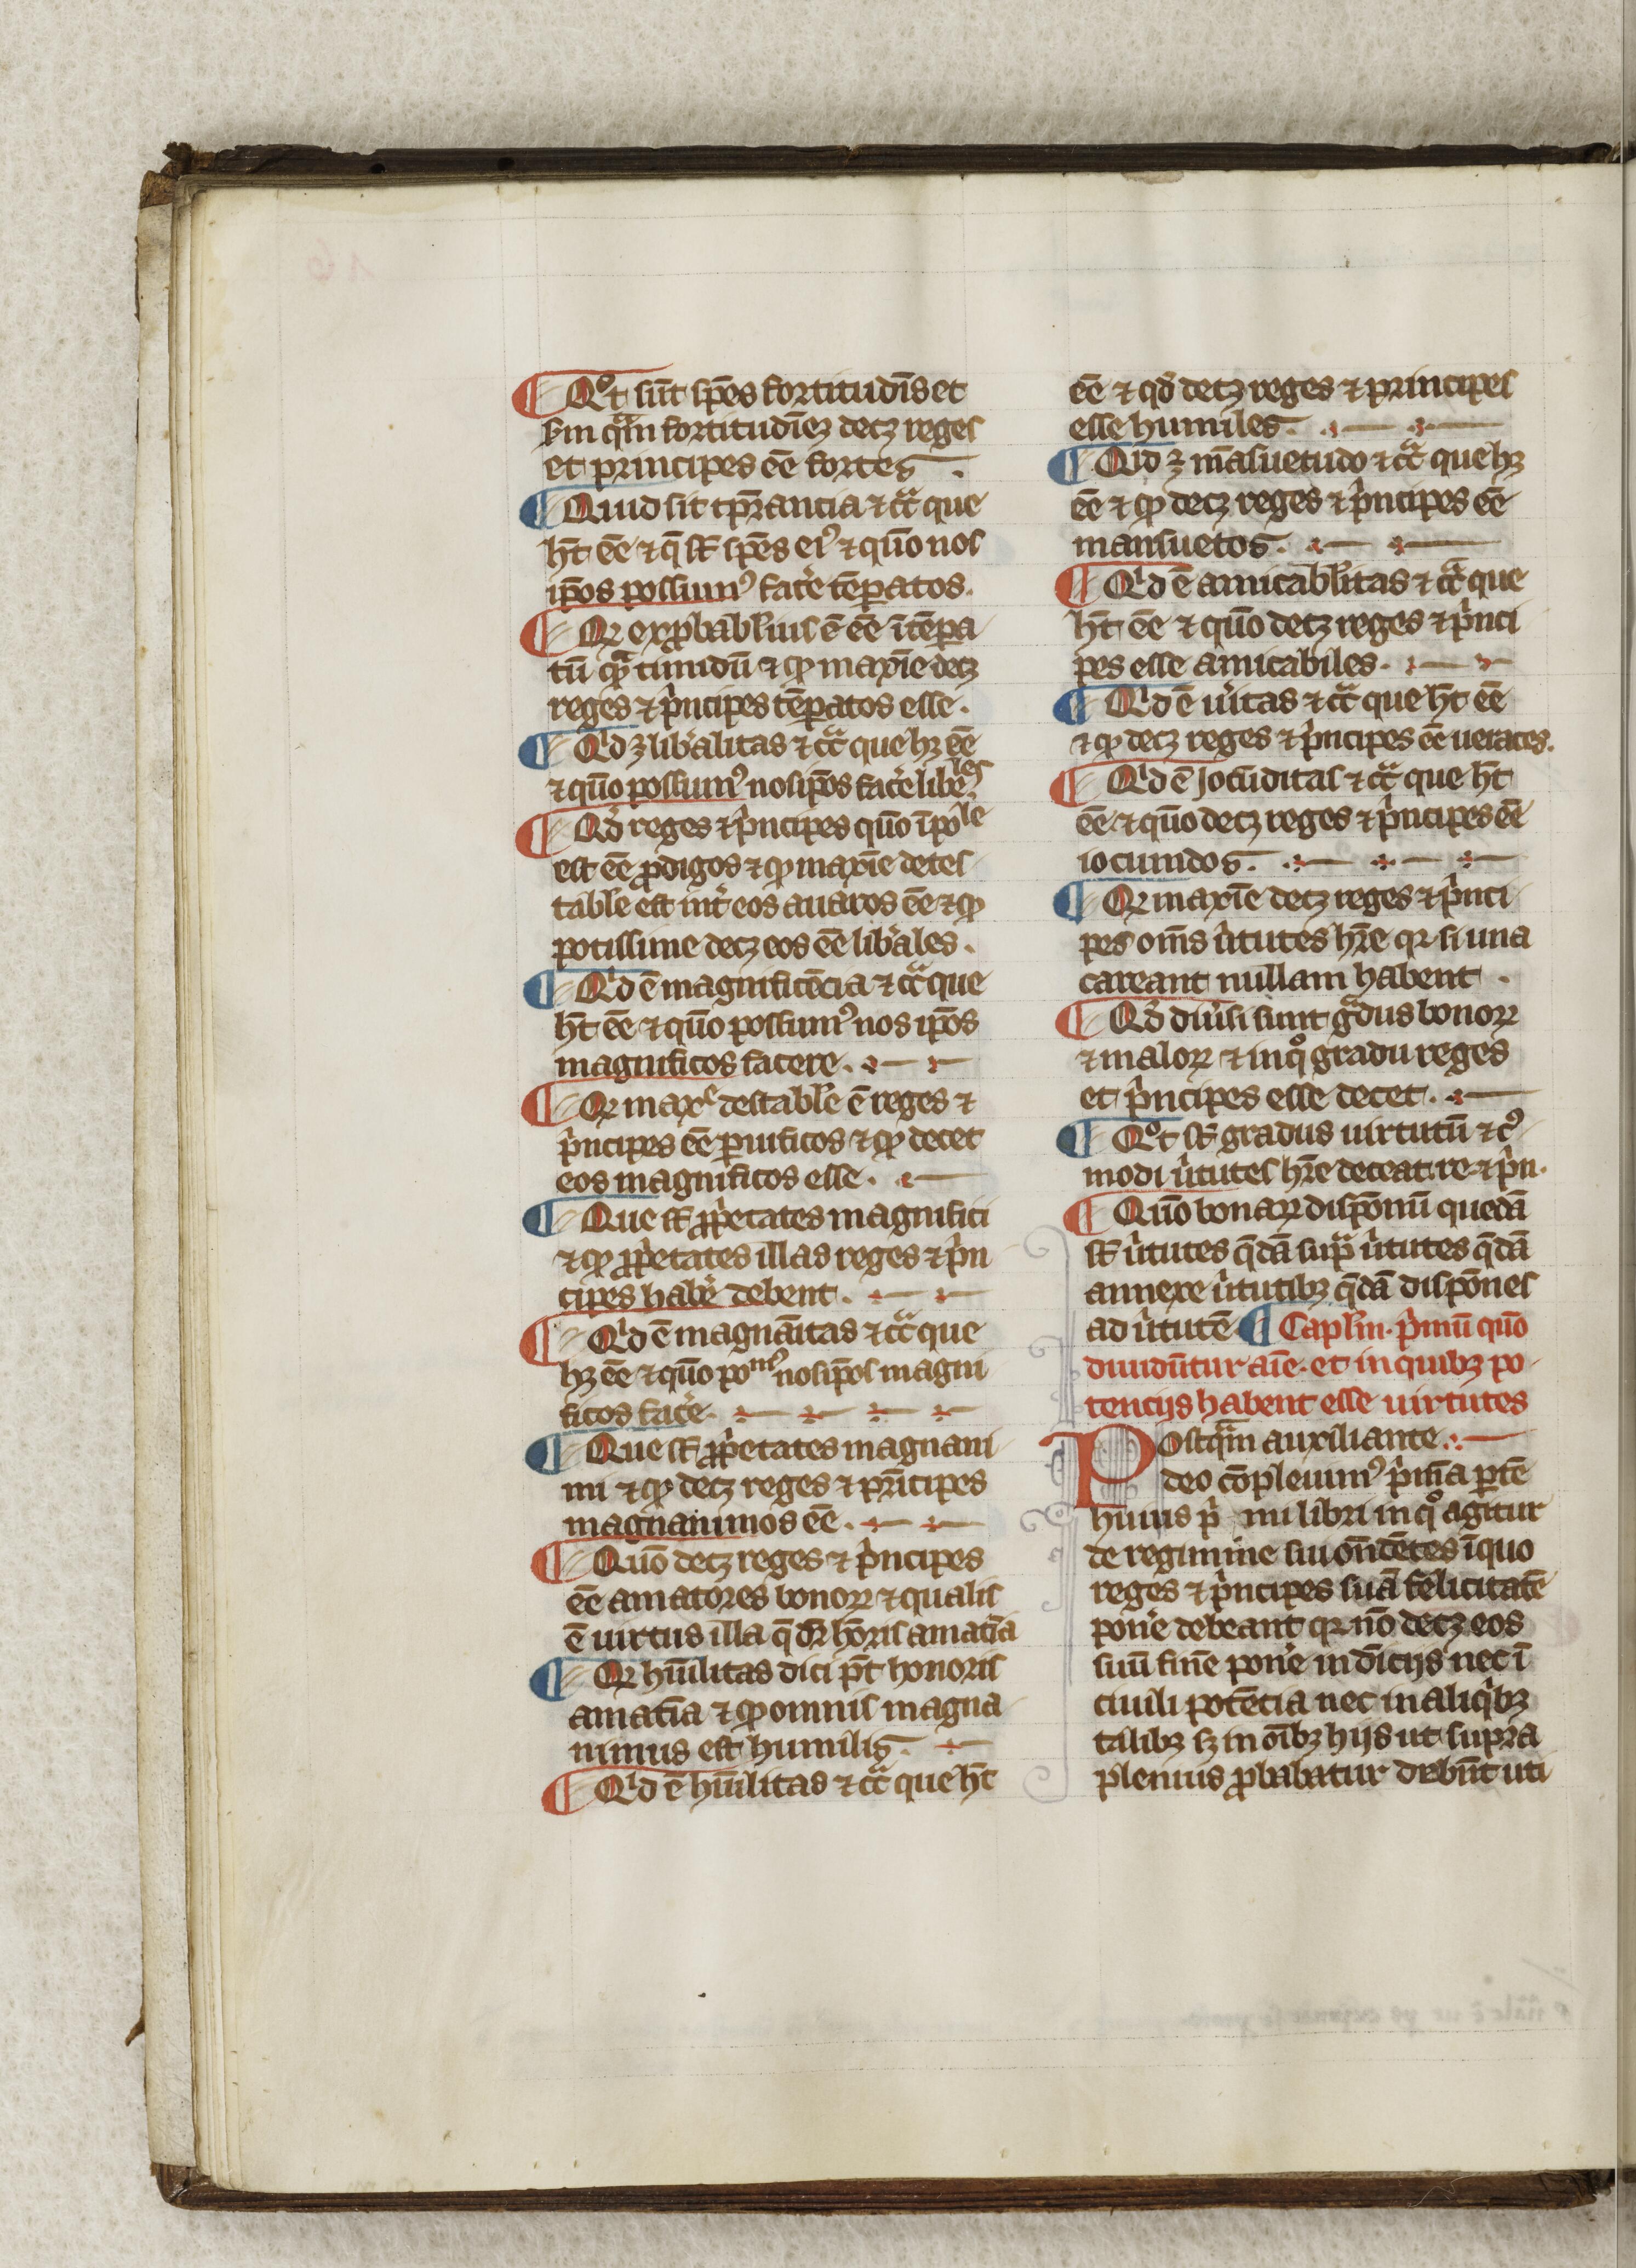 ¶ Qot sūt spēs fortitudīs et
scḋm quām fortitudīez decꝫ reges
et principes eē fortes .
¶ Quid sit tp̄rancia ⁊ cͣca que
hn̄t eē ⁊ q̄ st̄ spēs eiꝰ ⁊ quō nos
ip̄os possumꝰ facͤe tēꝑatos.
¶ Qꝛ exꝓbabłius ē eē ītēꝑa
tū qͣꝫ timidū ⁊ ꝙ maxīe decꝫ
reges ⁊ pͥncipes tēꝑatos esse .
¶ Qͥd ꝫ libͤalitas ⁊ cͣca que hꝫ eē
⁊ quō possumꝰ nosip̄os facͤe libͤales
¶ Qd̓ reges ⁊ pͥncipes quō īpoˡᵉ
est eē ꝓdigos ⁊ ꝙ maxīe detes
table est int̓ eos auaros eē ⁊ ꝙ
potissime decꝫ eos eē libͤales .
¶ Qͥd ē magnificēcia ⁊ cͣca que
hn̄t eē ⁊ quō possumꝰ nos ip̄os
magnificos facere .
¶ Qꝛ maxͤ destable ē reges ⁊
pͥncipes eē ꝑuificos ⁊ ꝙ decet
eos magnificos esse .
¶ Que st̄ ꝓpͥetates magnifici
⁊ ꝙ ꝓpͥetates illas reges ⁊ pͥn
cipes habͤe debent .
¶ Qͥd ē magnāītas ⁊ cͣca que
hꝫ eē ⁊ quō poᵐꝰ nosip̄os magni
ficos facͤe .
¶ Que st̄ ꝓpͥetates magnani
mi ⁊ ꝙ decꝫ reges ⁊ prīcipes
magnanimos eē .
¶ Quō decꝫ reges ⁊ pͥncipes
eē amatores bonoꝝ ⁊ qualis
ē uirtus illa q̄ dr̄ hōris amatīa
¶ Qꝛ hūilitas dici pōt honoris
amatīa ⁊ ꝙ omnis magna
nimus est humilis .
¶ Qͥd ē hūilitas ⁊ cͣca que hn̄t
eē ⁊ qd̓ decꝫ reges ⁊ principes
esse humiles .
¶ Qͥd ꝫ māsuetudo ⁊ cͣca que hꝫ
eē ⁊ ꝙ decꝫ reges ⁊ pͥncipes eē
mansuetos .
¶ Qͥd ē amicablitas ⁊ cͣca que
hn̄t eē ⁊ quō decꝫ reges ⁊ pͥnci
pes esse amicabiles .
¶ Qͥd ē uͥitas ⁊ cͣca que hn̄t eē
⁊ ꝙ decꝫ reges ⁊ pͥncipes eē ueraces.
¶ Qͥd ē Jocūditas ⁊ cͣca que hn̄t
eē ⁊ quō decꝫ reges ⁊ pͥncipes eē
iocundos .
¶ Qꝛ maxīe decꝫ reges ⁊ pͥnci
pes om̄s uͥtutes hr̄e qꝛ si una
careant nullam habent .
¶ Qd̓ diuͤsi sunt gͣdus bonoꝝ
⁊ maloꝝ ⁊ in qͦ gradu reges
et pͥncipes esse decet .
¶ Qot st̄ gradus uirtutū ⁊ cꝰ
modi uͥtutes hr̄e deceat re ⁊ pͥn .
¶ Quō bonaꝝ dispōnū quedā
st̄ uͥtutes q̄dā supͣ uͥtutes q̄dā
annexe uͥtutibꝫ q̄dā dispōnes
ad uͥtutē ¶ Caplm̄ . pͥmū quō
diuidūtur aīe . et in quibꝫ po
tencijs habent esse uirtutes
Postqͣm auxiliante .
deo cōpleuimꝰ pͥmā ꝑtē
huius pͥ mi libri in qͦ agitur
de regimine sui on̄dētes ī quo
reges ⁊ pͥncipes suā felicitatē
ponͤe debeant qꝛ nō decꝫ eos
suū finē ponͤe in dīcijs nec ī
ciuili potēcia nec in aliqͥbꝫ
talibꝫ sꝫ in oībꝫ hijs ut supra
plenius ꝓbabatur debūt uti